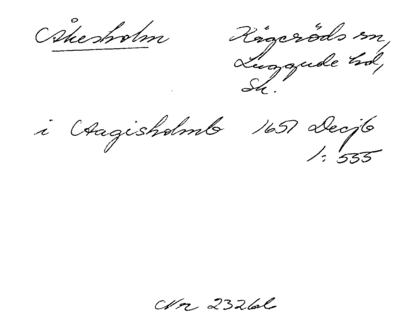 Åkesholm Kågeröds sn,
Luggude hd,
Sk.
i Aagisholmb 1657 Decjb
1: 555
Nr 23266